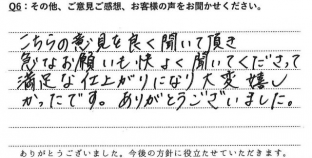 Q6：その他、ご意見ご感想、お客様の声をお聞かせください。
こちらの意見を良く聞いて頂き
急なお願いも快よく聞いてくださって
満足な仕上がりになり大変嬉し
かったです。ありがとうございました。
ありがとうございました。今後の方針に役立たせていただきます。